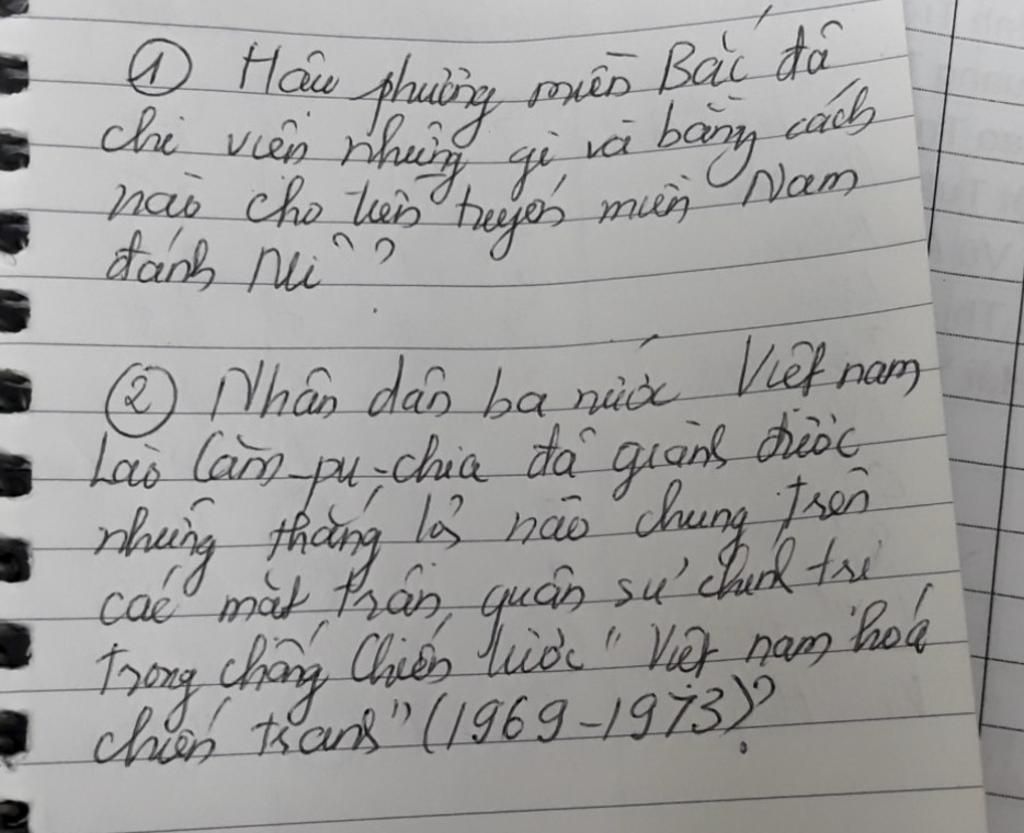 ① Hậu phường miền Bắc đã
chi viện những gì và bằng cách
nào cho tiền tuyến miền Nam
đánh Mĩ?
② Nhân dân ba nước Việt nam
Lào Căm-pu-chia đã giành được
những thắng lợi nào chung trên
các mặt trận, quân sự chính trị
trong chống Chiến lược "Việt nam hoá
chiến tranh" (1969-1973)?